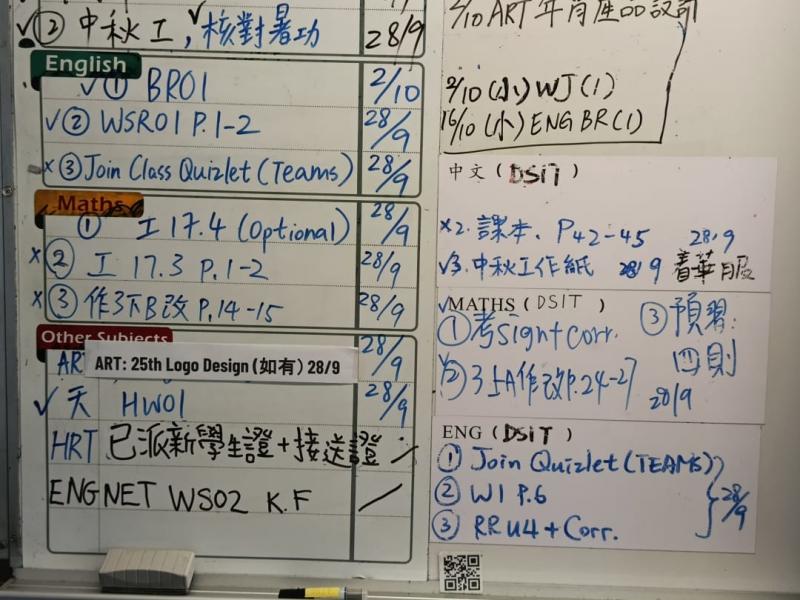 ✓② 中秋工, ✓核對暑功 28/9
English
✓① BR01 2/10
✓② WSR01 P.1-2 28/9
×③ Join Class Quizlet (Teams) 28/9
Maths
① 工17.4 (Optional) 28/9
×② 工17.3 P.1-2 28/9
×③ 作3下B改 P.14-15 28/9
Other Subjects
28/9
ART: 25th Logo Design (如有) 28/9
✓ 天 HW01 28/9
HRT 已派新學生證+接送證
ENG NET WS02 K.F /
2/10 ART 年宵產品設計
2/10 (小) WJ(1)
16/10 (小) ENG BR(1)
中文 ( DSIT )
×2. 課本. P42-45 28/9
✓3. 中秋工作紙 28/9 着華服
✓MATHS ( DSIT )
① 考Sign+Corr. ③ 預習:
四則
② 3上A作改P.24-27 28/9
ENG ( DSIT )
① Join Quizlet (TEAMS)
② W1 P.6 28/9
③ RR U4 + Corr.